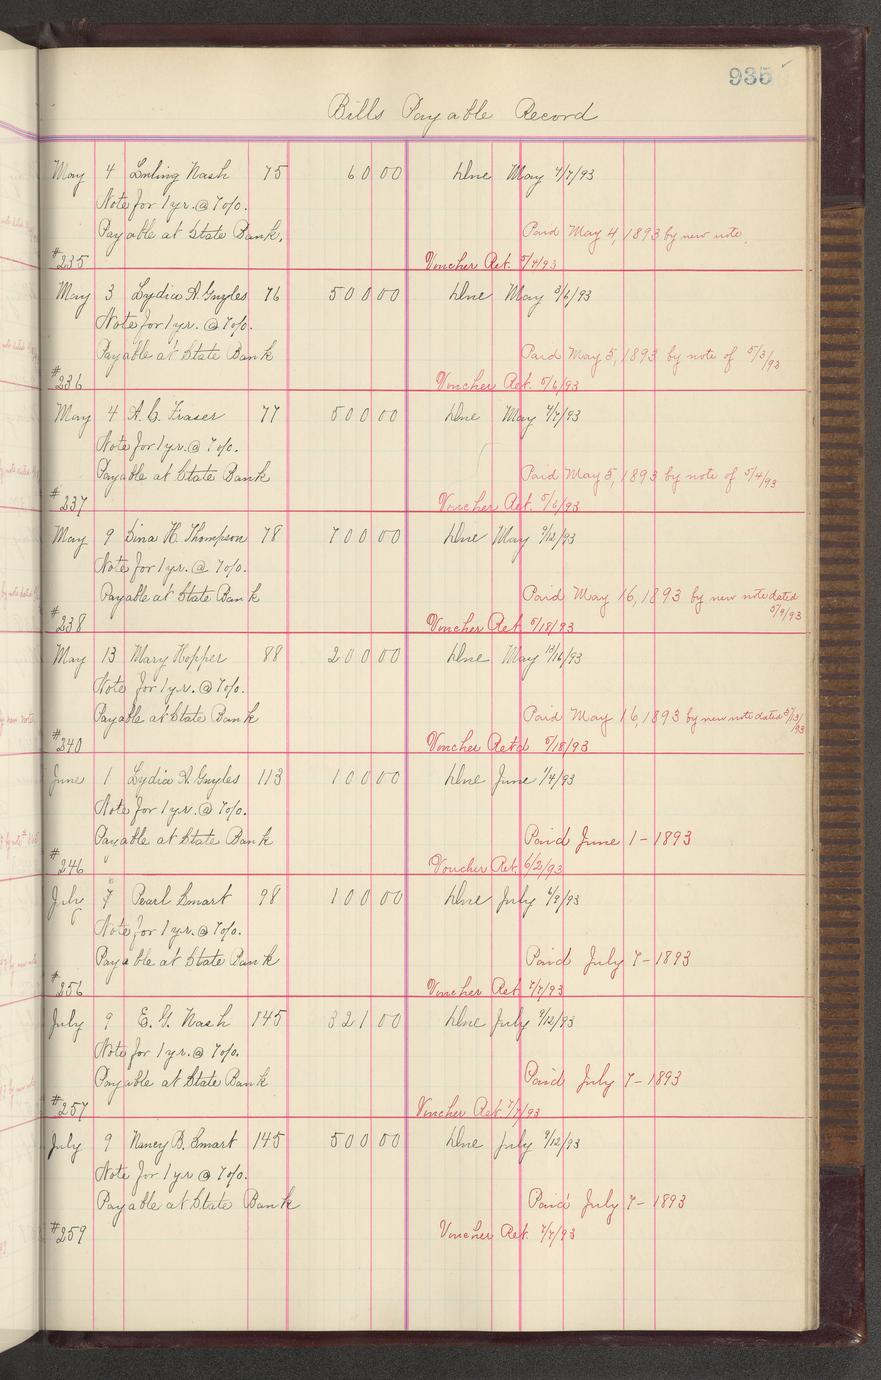 935
Bills Payable Record
May 4 Nash 75 60 00 Due May 4/7/93
Note for 1 yr. @ 7%.
Payable at State Bank. Paid May 4, 1893 by new note.
#235 Voucher Ret. 5/4/93
May 3 Lydia A. Guyles 76 500 00 Due May 3/6/93
Note for 1 yr. @ 7%.
Payable at State Bank Paid May 5, 1893 by note of 5/3/93
#236 Voucher Ret. 5/6/93
May 4 A. C. Fraser 77 500 00 Due May 4/7/93
Note for 1 yr. @ 7%.
Payable at State Bank Paid May 5, 1893 by note of 5/4/93
#237 Voucher Ret. 5/6/93
May 9 Sina H. Thompson 78 700 00 Due May 9/12/93
Note for 1 yr. @ 7%.
Payable at State Bank Paid May 16, 1893 by new note dated 5/9/93
#238 Voucher Ret. 5/18/93
May 13 Mary Hopper 88 200 00 Due May 13/16/93
Note for 1 yr. @ 7%.
Payable at State Bank Paid May 16, 1893 by new note dated 5/13/93
#240 Voucher Retd 5/18/93
June 1 Lydia A. Guyles 113 100 00 Due June 1/4/93
Note for 1 yr. @ 7%.
Payable at State Bank Paid June 1 - 1893
#246 Voucher Ret. 6/2/93
July Pearl Smart 98 100 00 Due July 6/9/93
Note for 1 yr. @ 7%.
Payable at State Bank Paid July 7 - 1893
#256 Voucher Ret. 7/7/93
July 9 E. G. Nash 145 321 00 Due July 9/12/93
Note for 1 yr. @ 7%.
Payable at State Bank Paid July 7 - 1893
#257 Voucher Ret. 7/7/93
July 9 Nancy B. Smart 145 500 00 Due July 9/12/93
Note for 1 yr @ 7%.
Payable at State Bank Paid July 7 - 1893
#259 Voucher Ret. 7/7/93